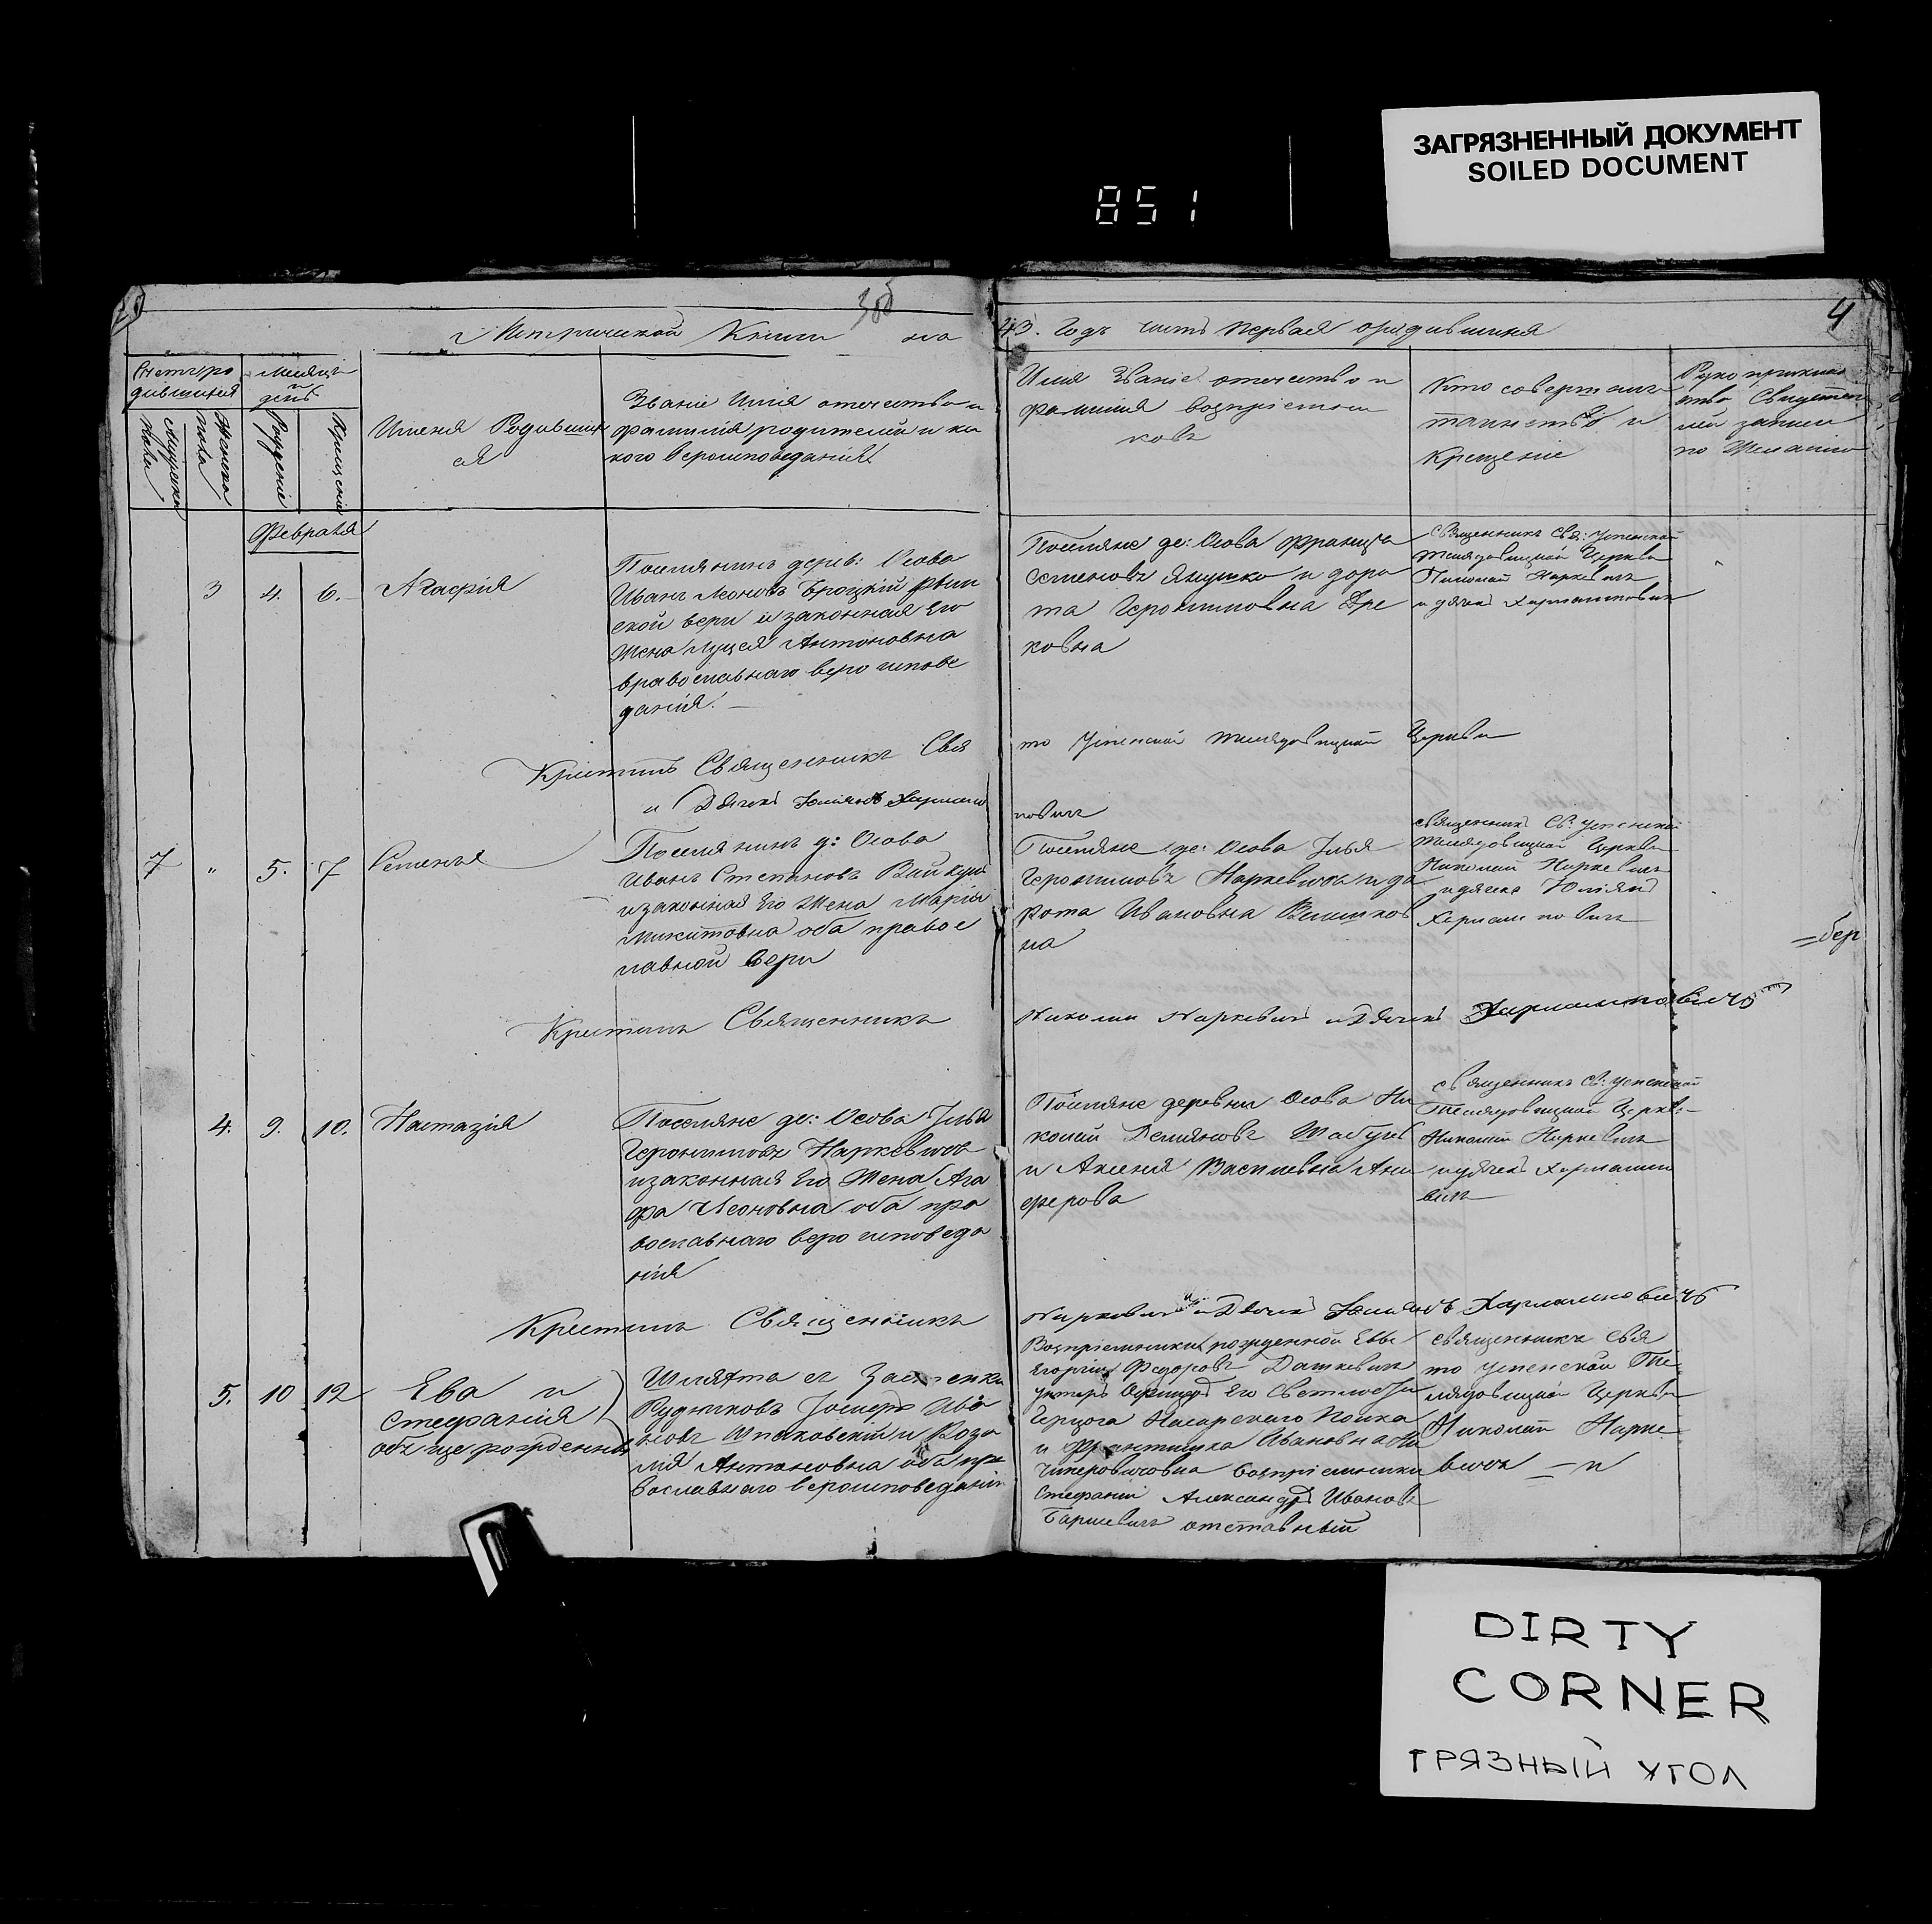 ЗАГРЯЗНЕННЫЙ ДОКУМЕНТ
SOILED DOCUMENT
851
4
Метрической Книги на
43. Годъ часть первая о родившихся
Счетъ родившихся
Мужеска пола
Женска пола
Месяцъ и день
Рождение
Крещение
Имена Родившихся
Званіе Имя отечество и
фамилія родителей и ка
кого вероисповеданія
Имя Званіе отечество и
фамилія воспріемни
ковъ
Кто совершалъ
таинство
Крещеніе
Рукоприклад
ство Свидетелей
записи
по Желанію
Февраля
3 4. 6. Агафія
Поселянинъ дерев: Осова
Иванъ Леоновъ Броцкій Рим
ской вери и законная Его
Жена Луцея Антоновна
православнаго веро испове
данія. —
Поселяне де: Осова Франца
Семеновъ Янушко и доро
та Герониповна Дре
ковна
Священникъ Свя: Успенской
Телядовицкой Церкви
Николай Наркевичъ
и дячекъ Хармановичъ
Крестилъ Священникъ Свя
то Успенской Телядовицкой Церкви
и Дячекъ Юліянъ Хармано
новичъ
7 " 5. 7 Семенъ
Поселянинъ д: Осова
Иванъ Степановъ Вайкуль
и законная Его Жена Марія
Микитовна оба правос
лавной вери
Поселяне де: Осова Илья
Геронимовъ Наркевичъ и до
рота Ивановна
на
священникъ Св: Успенской
Телядовицкой Церкви
Николай Наркевичъ
и дячекъ Юліянъ
=бер
Крестилъ Священникъ
Николай Наркевичъ и Дячекъ
4. 9. 10. Настазія
Поселяне де: Осова Илья
Геронимовъ Наркевичъ
и законная Его Жена Ага
фа Леоновна оба пра
вославнаго веро исповеда
нія
Поселяне деревни Осова Ни
колай Демяновъ
и Аксенія Василевна Ани
ферова
священникъ Св: Успенской
Телядовицкой Церкви
Николай Наркевичъ
и дячекъ
вичъ
Крестилъ Священникъ
Наркевичъ и Дячекъ Юліянъ
5. 10 12 Ева и
Стефанія
обе рожденны
Шляхта съ Застенка
Рудниковъ Іосифъ Ива
новъ Шпаковскій и Роза
лія Антоновна оба пра
вославнаго вероисповеданія
Воспріемники рожденной Евы
Георгій Федоровъ Дашкевичъ
унтеръ Офицеръ Его Светлости
Герцога Насарскаго Полка
и Франтишка Ивановна Ни
чипоровичовна воспріемники
Стефаніи Александръ Ивановъ
отставный
священникъ Свя
то Успенской Те
лядовицкой Церкви
Николай Нарке
вичъ — и
DIRTY
CORNER
ГРЯЗНЫЙ УГОЛ